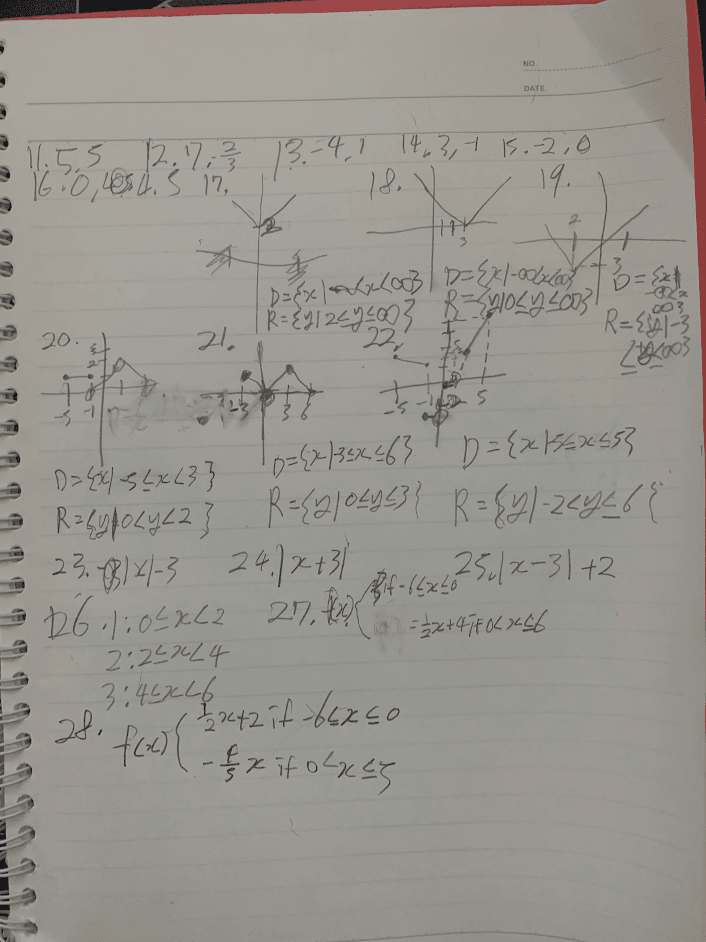 NO.
DATE.
11. 5, 5 12. 17, 2/3 13. -4, 1 14. 3, -1 15. -2, 0
16. 0, 4.5 17. 18. 19.
3
2
3
D={x|-∞<x<∞} D={x|-∞<x<∞} D={x|-∞<x<∞}
R={y|2≤y≤∞} R={y|0≤y≤∞} R={y|-3≤y<∞}
20. 21. 22.
-5 -1 -3 3 6 -5 -1 5
D={x|-5≤x<3} D={x|-3≤x≤6} D={x|-5≤x≤5}
R={y|0<y<2} R={y|0≤y≤3} R={y|-2<y≤6}
23. |x|-3 24. |x+3| 25. |x-3|+2
26. 1: 0≤x<2 27. f(x){ if -6<x≤0
2: 2≤x<4 =1/2x+4 if 0<x≤6
3: 4≤x<6
28. f(x){ 1/2x+2 if -6≤x≤0
-4/5 x if 0<x≤5